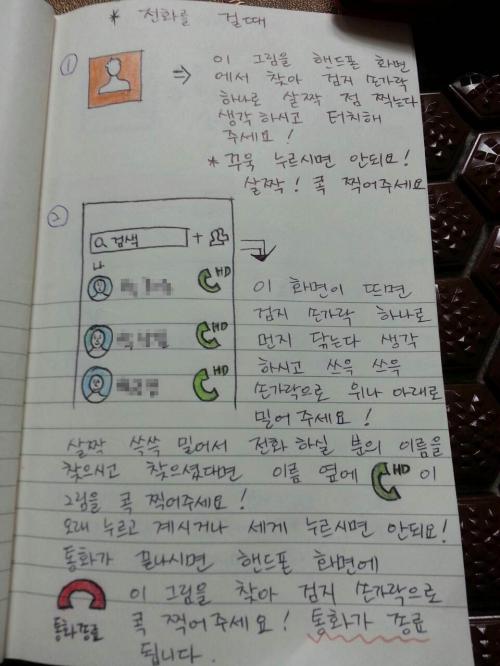 * 전화를 걸때
① ⇒ 이 그림을 핸드폰 화면
에서 찾아 검지 손가락
하나로 살짝 점 찍는다
생각하시고 터치해
주세요!
* 꾸욱 누르시면 안되요!
살짝! 콕 찍어주세요
②
검색 +
나
HD
HD
HD
이 화면이 뜨면
검지 손가락 하나로
먼지 닦는다 생각
하시고 쓰윽 쓰윽
손가락으로 위나 아래로
밀어 주세요!
살짝 쓱쓱 밀어서 전화 하실 분의 이름을
찾으시고 찾으셨다면 이름 옆에 HD 이
그림을 콕 찍어주세요!
오래 누르고 계시거나 세게 누르시면 안되요!
통화가 끝나시면 핸드폰 화면에
이 그림을 찾아 검지 손가락으로
통화종료 콕 찍어주세요! 통화가 종료
됩니다.